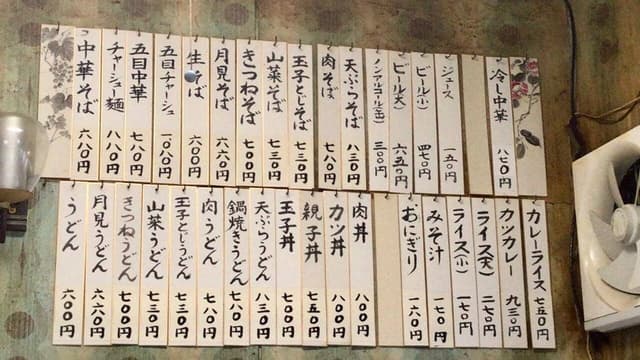 冷し中華 八七〇円
ジュース 一五〇円
ビール(小) 四七〇円
ビール(大) 六五〇円
ノンアルコール(缶) 三〇〇円
天ぷらそば 八三〇円
肉そば 七八〇円
玉子とじそば 七三〇円
山菜そば 七三〇円
きつねそば 七〇〇円
月見そば 六六〇円
生そば 六〇〇円
五目チャーシュー 一〇八〇円
五目中華 七八〇円
チャーシュー麺 八八〇円
中華そば 六八〇円
カレーライス 七五〇円
カツカレー 九三〇円
ライス(大) 二七〇円
ライス(小) 一七〇円
みそ汁 一七〇円
おにぎり 一六〇円
肉丼 八〇〇円
カツ丼 八〇〇円
親子丼 七五〇円
玉子丼 七〇〇円
天ぷらうどん 八三〇円
鍋焼きうどん
肉うどん 七八〇円
玉子とじうどん 七三〇円
山菜うどん 七三〇円
きつねうどん 七〇〇円
月見うどん 六六〇円
うどん 六〇〇円